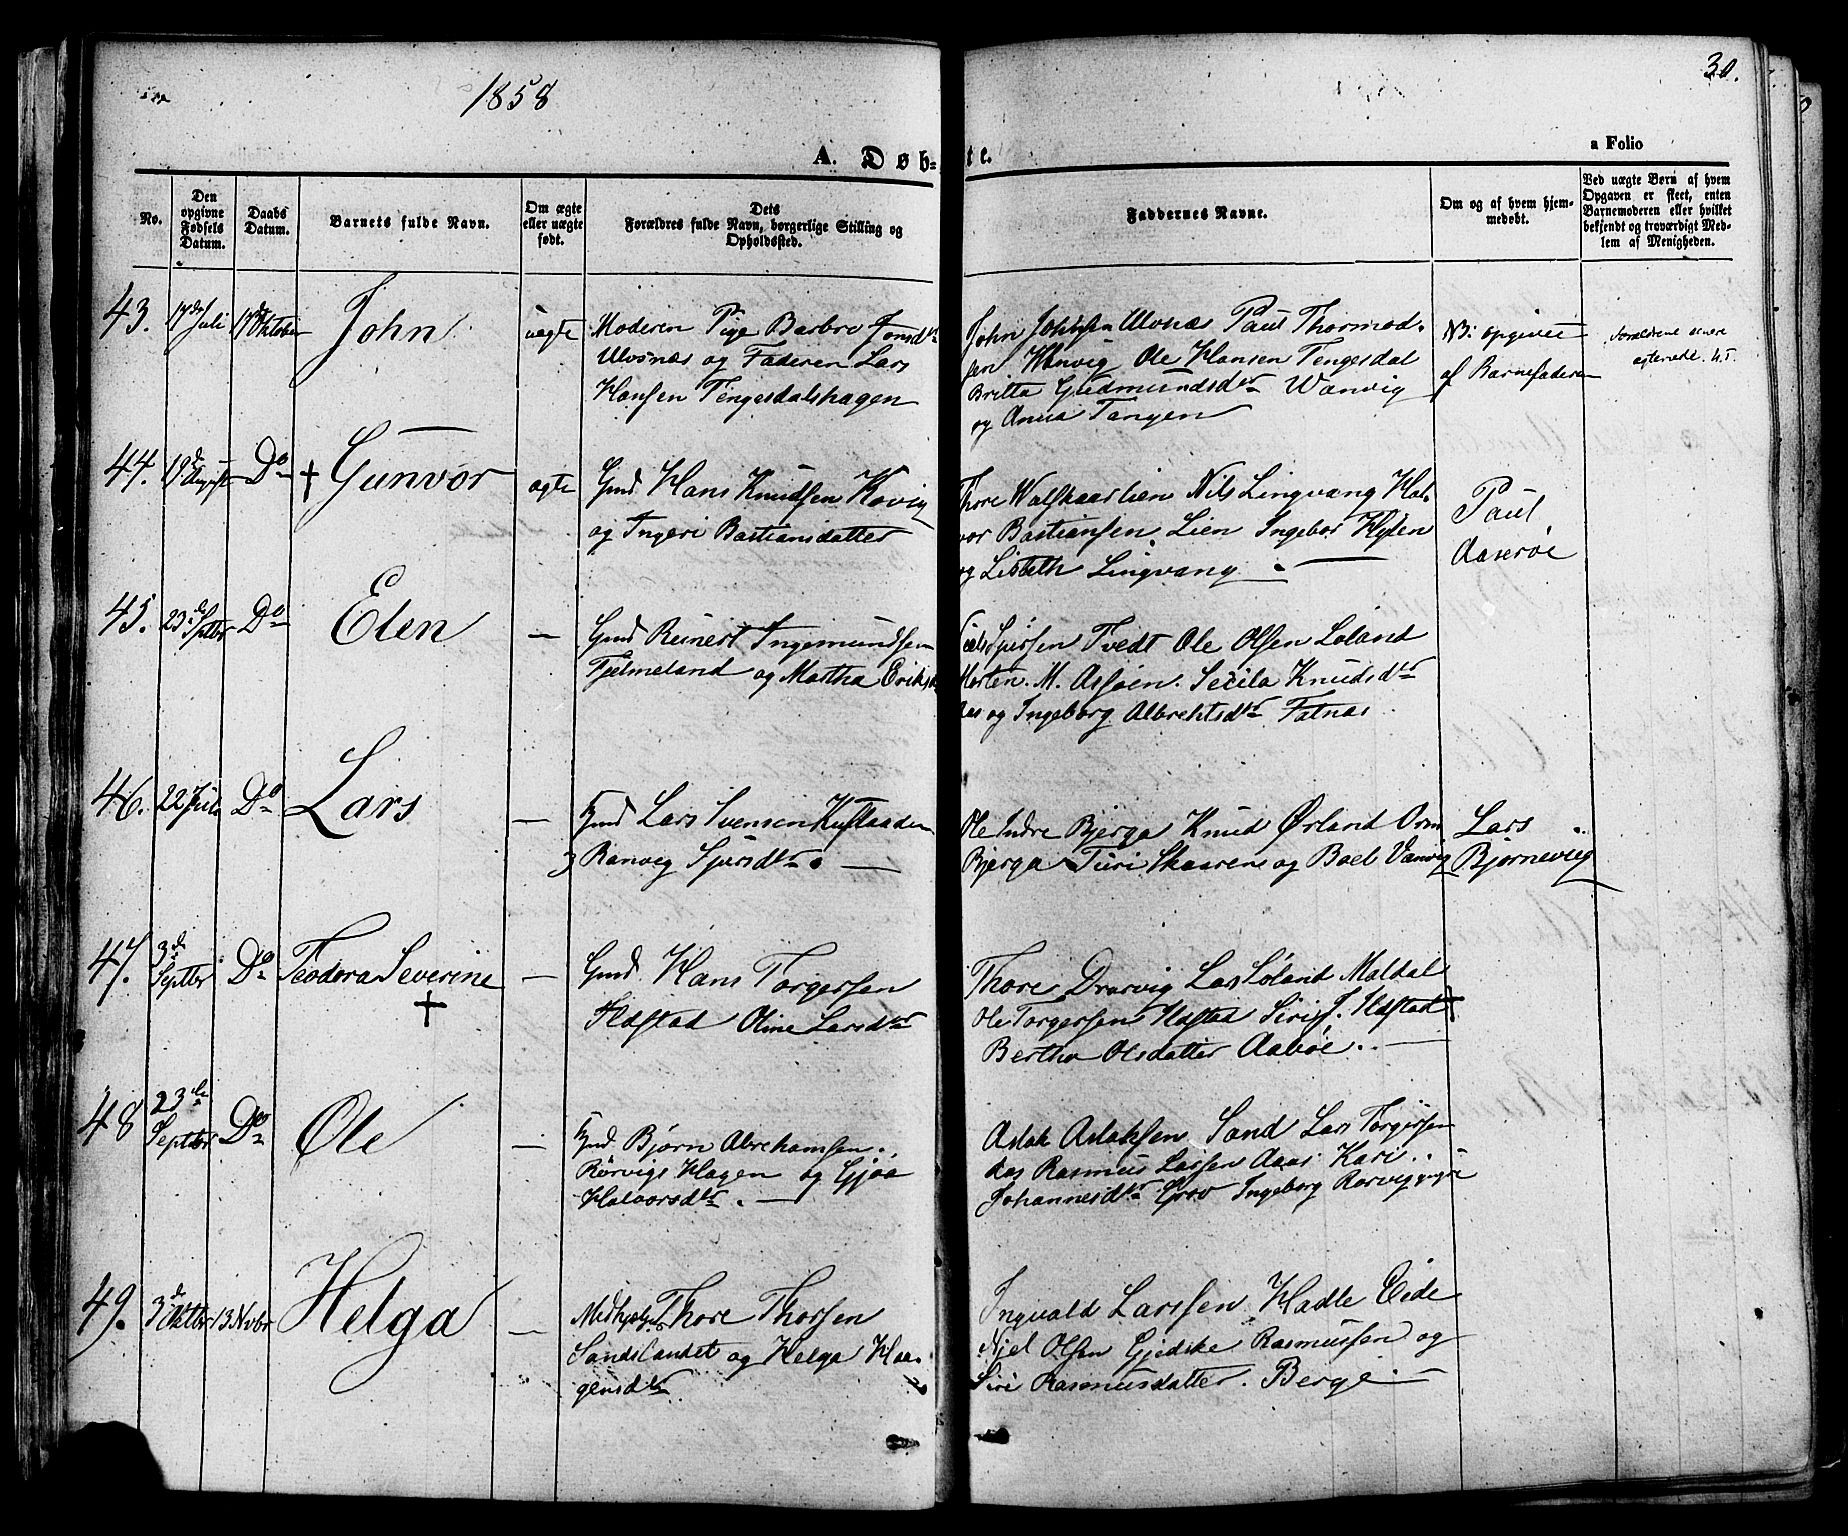 1858
30.
A. Døb-
te.
a Folio
No.
Den opgivne Fødsels Datum.
Daabs Datum.
Barnets fulde Navn.
Om ægte eller uægte født.
Dets
Forældres fulde Navn, borgerlige Stilling og
Opholdssted.
Faddernes Navne.
Om og af hvem hjem-
medøbt.
Ved uægte Børn af hvem
Opgaven er skeet, enten
Barnemoderen eller hvilket
bekjendt og troværdigt Med-
lem af Menigheden.
43. 17de Juli 17de Oktober John uægte Moderen Pige Barbro Jonsdtr
Ulvsnæs og Faderen Lars
Hansen Tengesdalshagen
John Ulvnæs Paul Thormod-
sen Hanvig Ole Hansen Tengesdal
Britta Gudmundsdtr Wanvig
og Anna Tangen
NB: opgivet
af Barnefaderen
Forældrene senere
44. 19de August Do † Gunvor ægte Gmd Hans Knudsen Kovig
og Ingeri Bastiansdatter
Thore Walskaarlien Nils Lingvang Hal-
vor Bastiansen Lien Ingebor Hylen
og Lisbeth Lingvang
Paul
Aaserøe
45. 23de Septbr Do Elen — Gmd Reinert Ingemundsen
Fjelmeland og Martha Eriksd
Sjursen Tvedt Ole Olsen Løland
Morten. M. Asføen. Secila Knudsdtr
Aas og Ingeborg Albrechtsdtr Fatnas
46. 22 Juli Do Lars — Gmd Lars Svensen
Ranveg Sjursdtr
Ole Indre Bjerga Knud Ørland Orm
Bjerga Turi Skaaren og Boel Vanvig
Lars
Bjørnevieg
47. 3de Septbr Do Teodora Severine † — Gmd Hans Torgersen
Ildstad Oline Larsdtr
Thore Drarvig Lars Løland Maldal
Ole Torgersen Ildstad Siri T. Ildstad †
Bertha Olsdatter Aabøe
48 23de Septbr Do Ole — Gmd Bjørn Abrehamsen
Rørvigs Hagen og Gjøa
Halvorsdtr
Aslak Aslaksen Sand Lars Torgersen
Aas Rasmus Larsen Aaas Kari
Johannesdtr Grov Ingeborg
49. 3de Oktbr 13 Novbr Helga — Medhjelper Thore Thorsen
Sandslandet og Helga Haa-
gensdtr
Ingvald Larssen Hadle Eide
Njel Olsen Gjedske Rasmussen og
Siri Rasmusdatter. Berge